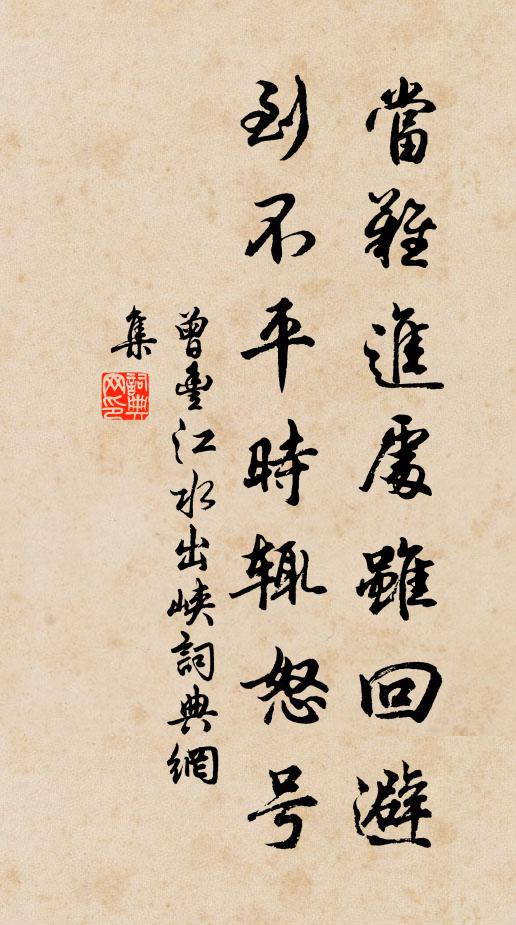 當難進處雖回避
到不平時輒怒号
曾豐江水出峽詞典網
集
詞典
网印